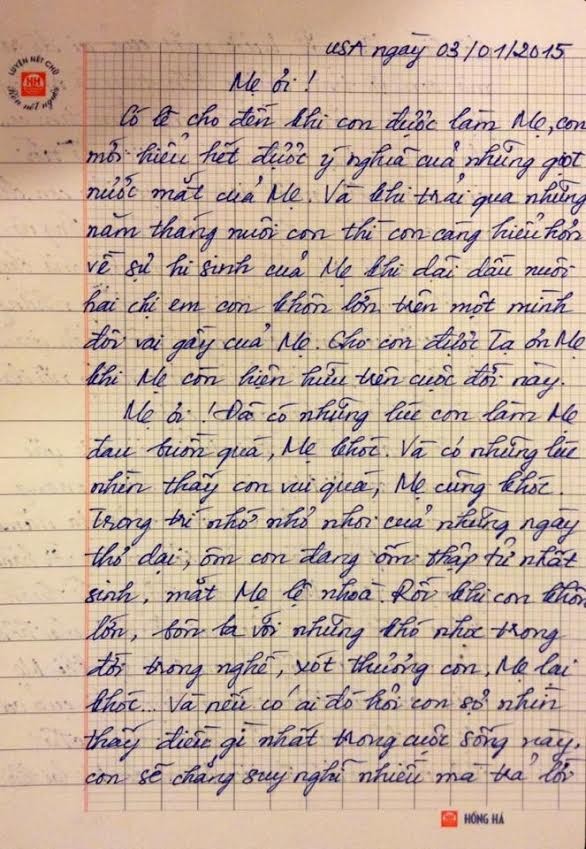 LUYỆN NÉT CHỮ
Rèn nết người
HH
USA ngày 03/01/2015
Mẹ ơi !
Có lẽ cho đến khi con được làm Mẹ, con
mới hiểu hết được ý nghĩa của những giọt
nước mắt của Mẹ. Và khi trải qua những
năm tháng nuôi con thì con càng hiểu hơn
về sự hi sinh của Mẹ khi dãi dầu nuôi
hai chị em con khôn lớn trên một mình
đôi vai gầy của Mẹ. Cho con được Tạ ơn Mẹ
khi Mẹ còn hiện hữu trên cuộc đời này.
Mẹ ơi ! Đã có những lúc con làm Mẹ
đau buồn quá, Mẹ khóc. Và có những lúc
nhìn thấy con vui quá, Mẹ cũng khóc.
Trong trí nhớ nhỏ nhoi của những ngày
thơ dại, ôm con đang ốm thập tử nhất
sinh, mắt Mẹ lệ nhoà. Rồi khi con khôn
lớn, bôn ba với những khó nhọc trong
đời trong nghề, xót thương con, Mẹ lại
khóc... Và nếu có ai đó hỏi con sợ nhìn
thấy điều gì nhất trong cuộc sống này,
con sẽ chẳng suy nghĩ nhiều mà trả lời
HỒNG HÀ